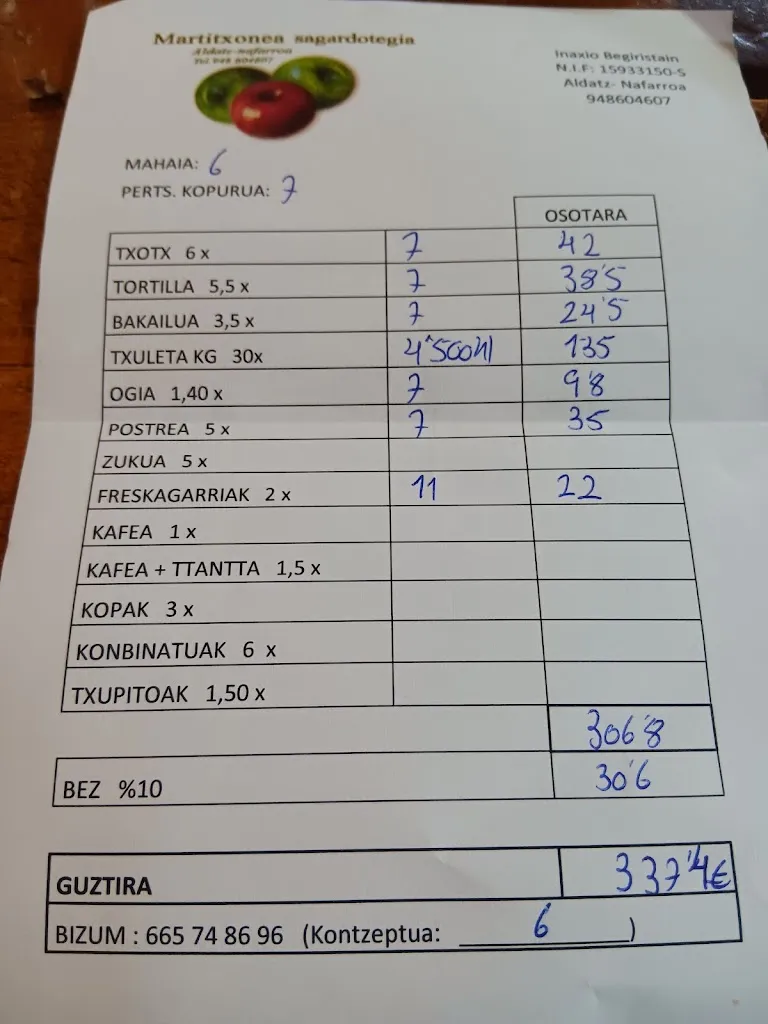 Martitxonea sagardotegia
Aldatz-nafarroa
Tel 948 604607
Inaxio Begiristain
N.I.F: 15933150-S
Aldatz- Nafarroa
948604607
MAHAIA: 6
PERTS. KOPURUA: 7
OSOTARA
TXOTX 6 x 7 42
TORTILLA 5,5 x 7 38'5
BAKAILUA 3,5 x 7 24'5
TXULETA KG 30x 4'500 135
OGIA 1,40 x 7 9'8
POSTREA 5 x 7 35
ZUKUA 5 x
FRESKAGARRIAK 2 x 11 22
KAFEA 1 x
KAFEA + TTANTTA 1,5 x
KOPAK 3 x
KONBINATUAK 6 x
TXUPITOAK 1,50 x
306'8
BEZ %10 30'6
GUZTIRA 337'4€
BIZUM : 665 74 86 96 (Kontzeptua: 6 )